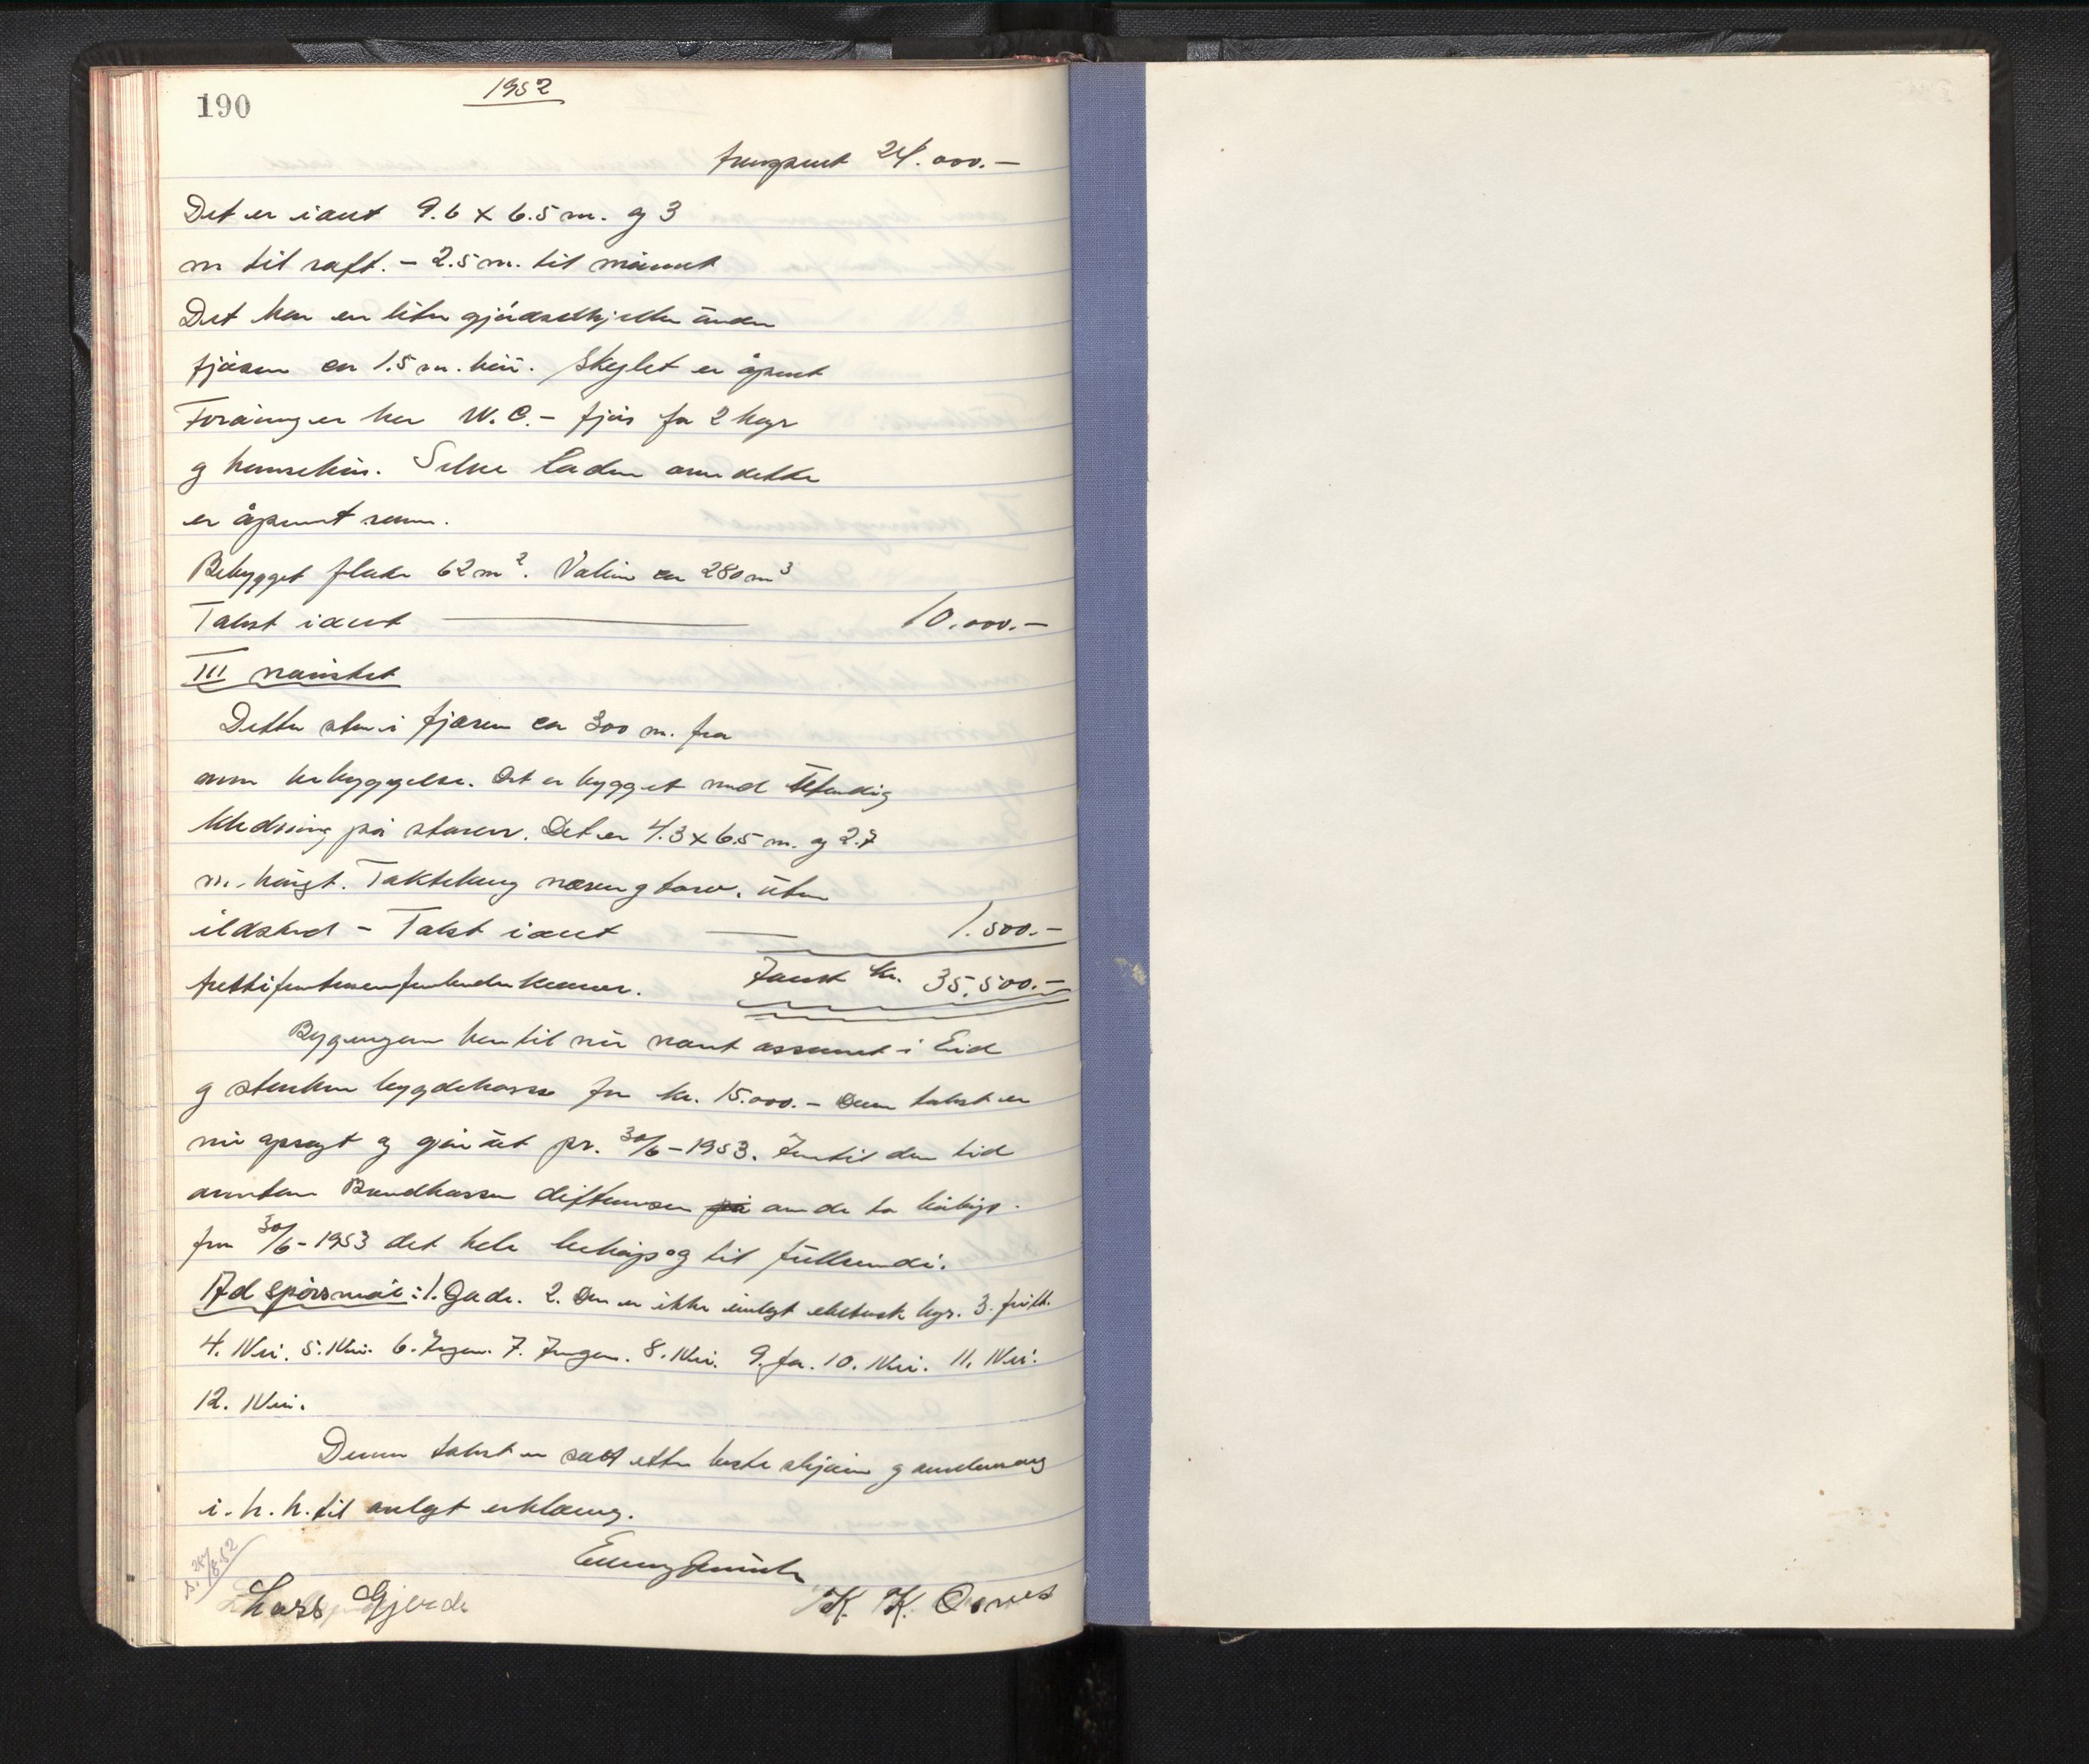 190
1952
frampent 24.000.-
Det er i alt 9.6 x 6.5 m. og 3
m til raft. - 2.5 m. til mønet
Det har en liten gjødselkjeller under
fjøsen ca 1.5 m. høi. Skyket er åpent
er W.C. - fjøs for 2 kyr
og hønsehus. Selve laden over dette
er åpent rom.
Bebygget flate 62 m². Volum ca 280 m³
Takst i alt 10.000.-
III naustet
Dette står i fjæren ca 300 m. fra
annen bebyggelse. Det er bygget med utvendig
kledning på staver. Det er 4.3 x 6.5 m. og 2.7
m. høigt. Taktekning næver og torv. Uten
ildsted - Takst i alt 1.500.-
trettifemtusenfemhundrekroner. I alt kr. 35.500.-
Bygningen har til nu vært assurert i Eid
og bygdekasse for kr. 15.000.- Denne takst er
nu opsagt og går ut pr. 30/6-1953. Inntil den tid
Brandkassen differansen på om de så
fra 30/6-1953 det hele beløp og til fullverdi.
Ad spørsmål: 1. Gode. 2. Den er ikke innlagt elektrisk lys. 3.
4. Nei. 5. Nei. 6. Ingen. 7. Ingen. 8. Nei. 9. Ja. 10. Nei. 11. Nei.
12. Nei.
Denne takst er satt etter beste skjønn og
i.h.h. til avlagt erklæring.
s. 28/8-52
Lars Gjerde K. K. Osnes